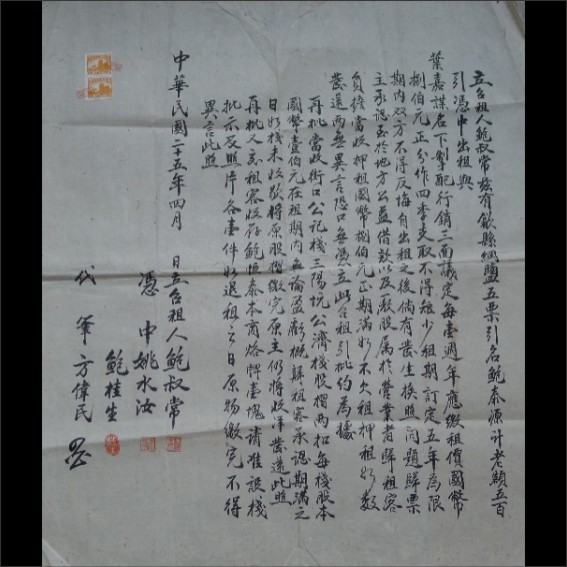 立合租人鮑叔常茲有歙縣綱鹽五票引名鮑泰源計老額五百
引憑中出租與
葉嘉謀名下製配行銷三面議定每壹週年應繳租價國幣
捌伯元正分作四季支取不得短少租期訂定五年為限
期內双方不得反悔自出租之後倘有發生換照問題歸票
主承認至於地方公益借款以及厰股属於營業者歸租客
負繳當收押租國幣捌伯元正期滿如不欠租押租如数
發還兩無異言恐口無憑立此合租引批约為據
再批當收街口公記棧三陽坑公濟棧股摺兩扣每棧股本
國幣壹伯元在租期內無論盈虧概歸租客承認期滿之
日如棧未收歇將原股摺繳完原主仍將收洋發還此照
再批人名租客收存鮑恒泰本商烙牌壹塊請准設棧
批示及照片各壹件如退租之日原物繳完不得
異言此照
中華民國二十五年四月 日立合租人鮑叔常
憑中姚水汝
鮑桂生
代筆方偉民